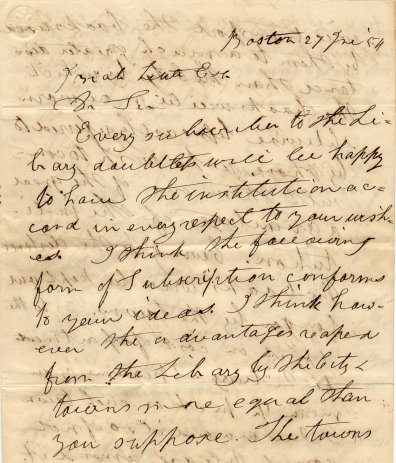 Boston 27 Jne '54
Josiah Esq
Dr Sir
Every subscriber to the Li-
brary doubtless will be happy
to have the institution ac-
cord in every respect to your wish-
es. I think the foregoing
form of Subscription conforms
to your ideas. I think how-
ever the advantages reaped
from the Library by the City &
towns more equal than
you suppose. The towns